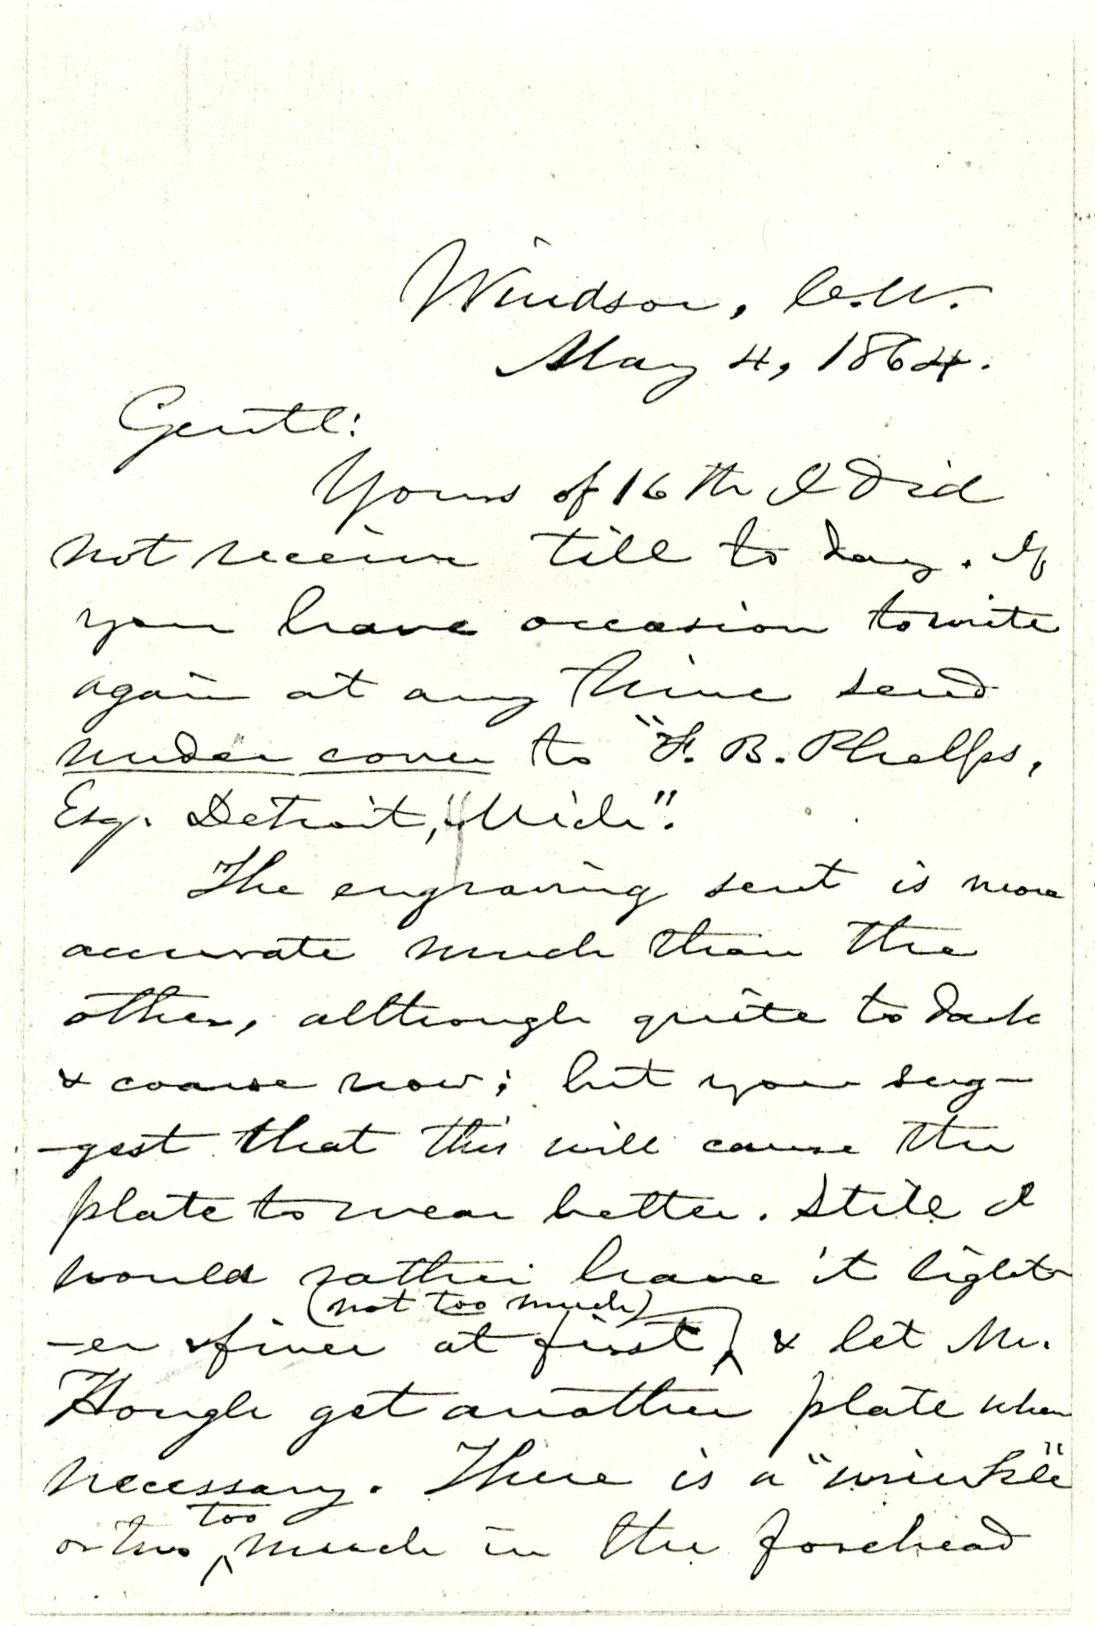 Windsor, C.W.
May 4, 1864.
Gentl:
Yours of 16th I did
not receive till to day. If
you have occasion to write
again at any time send
under cover to "F. B. Phelps,
Esq. Detroit, Mich".
The engraving sent is more
accurate much than the
other, although quite to dark
& coarse now; but you sug-
-gest that this will cause the
plate to wear better. Still I
would rather have it light-
(not too much)
-er & finer at first, & let Mr.
Hough get another plate when
necessary. There is a "wrinkle"
too
or two ^ much in the forehead